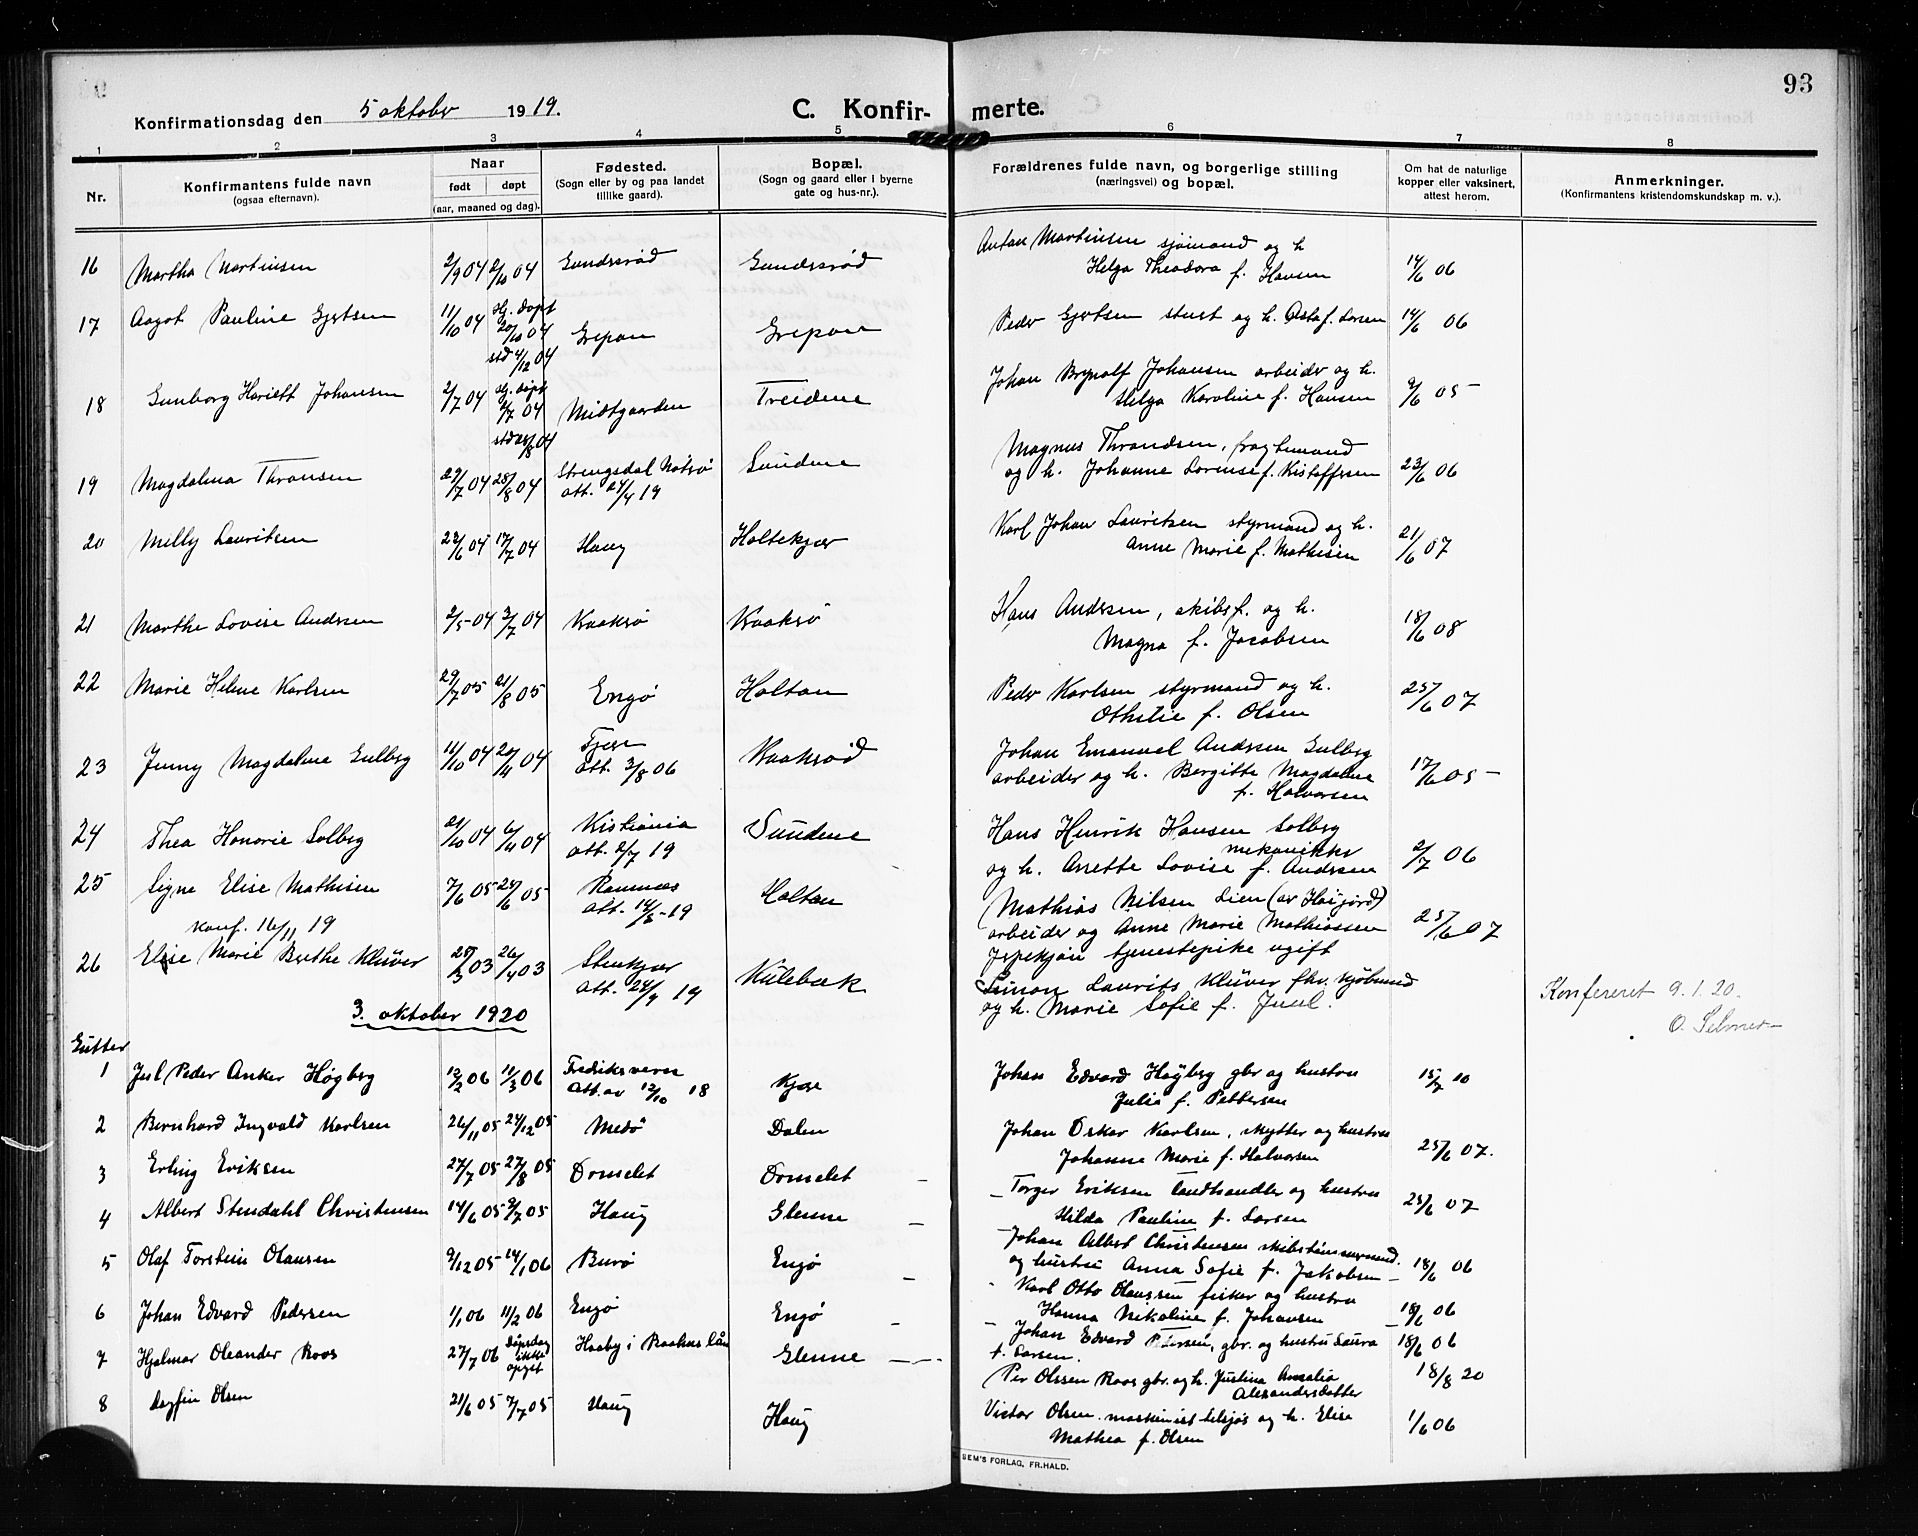 93
Konfirmationsdag den 5 oktober 1919.
C. Konfirmerte.
1 2 3 4 5 6 7 8
Nr.
Konfirmantens fulde navn
(ogsaa efternavn).
Naar
født døpt
(aar, maaned og dag).
Fødested.
(Sogn eller by og paa landet
tillike gaard).
Bopæl.
(Sogn og gaard eller i byerne
gate og hus-nr.).
Forældrenes fulde navn, og borgerlige stilling
(næringsvei) og bopæl.
Om hat de naturlige
kopper eller vaksinert,
attest herom.
Anmerkninger.
(Konfirmantens kristendomskundskap m. v.).
16 Martha Martinsen 2/9 04 2/10 04 Gundersrød Gundersrød Anton Martinsen sjømand og h
Helga Theodora f. Hansen 14/6 06
17 Aagot Pauline Gjertsen 11/10 04 Hj. døpt 20/10 04 std 4/12 04 Grepan Grepan Peder Gjertsen stuert og h. Asta f. Larsen 14/6 06
18 Gunborg Hariett Johansen 2/7 04 Hj. døpt 2/7 04 std 28/8 04 Midtgaarden Treidene Johan Brynolf Johansen arbeider og h.
Helga Karoline f. Hansen 9/6 05
19 Magdalena Thronsen 29/7 04 28/8 04 Strengsdal Nøtrø Sundene Magnus Thrandsen, fragtemand
att. 24/4 19 og h. Johanne Lorense f. Kristoffersen 23/6 06
20 Milly Lauritsen 23/6 04 17/7 04 Haug Holtekjær Karl Johan Lauritsen styrmand og h.
Anne Marie f. Mathisen 21/6 07
21 Marthe Lovise Andersen 2/5 04 3/7 04 Kraaksrø Kraaksrø Hans Andersen, skibsf. og h.
Magna f. Jacobsen 18/6 08
22 Marie Helene Karlsen 29/7 05 21/8 05 Engø Holtan Peder Karlsen styrmand og h.
Othilie f. Olsen 25/6 07
23 Jenny Magdalene Gulberg 11/10 04 20/11 04 Tjøme Kraaksrød Johan Emanuel Andersen Gulberg
att. 3/8 06 arbeider og h. Bergitte Magdalene
f. Halvorsen 17/6 05
24 Thea Honorie Solberg 21/10 04 6/11 04 Kristiania Sundene Hans Henrik Hansen Solberg
mekanikker
att. 2/7 19 og h. Anette Lovise f. Andersen 2/7 06
25 Signe Elise Mathisen 7/6 05 25/6 05 Ramnæs Holtan Mathias Nilsen Lien (av Høijord)
konf. 16/11 19 att. 14/8-19 arbeider og Anne Marie Mathiassen
tjenestepike ugift 25/6 07
26 Elise Marie Berthe Klüver 25/3 03 26/4 03 Stenkjær Kulebæk Simon Laurits Klüver fhv. kjøbmand
att. 24/9 19 og h. Marie Sofie f. Juul.
Konfereret 9.1.20.
O. Selmer
3. oktober 1920
Gutter
1 Juel Peder Anker Høgberg 12/2 06 11/3 06 Fredriksværn Kjøse Johan Edvard Høgberg gbr og hustru
Att. av 12/10 18 Julia f. Pettersen 15/7 10
2 Bernhard Ingvald Karlsen 26/11 05 24/12 05 Medø Dalen Johan Oskar Karlsen, skytter og hustru
Johanne Marie f. Halvorsen 25/6 07.
3 Erling Eriksen 27/7 05 27/8 05 Ormelet Ormelet Torger Eriksen landhandler og hustru
Hilda Pauline f. Larsen 25/6 07
4 Albert Stendahl Christensen 14/6 05 9/7 05 Haug Glenne Johan Albert Christensen skibstømmermand.
og hustru Anna Sofie f. Jakobsen 18/6 06
5 Olaf Torstein Olausen 9/12 05 14/1 06 Burø Engø Karl Otto Olaussen fisker og hustru
Hanna Nikoline f. Johansen 18/6 06
6 Johan Edvard Pedersen 1/1 06 11/2 06 Engø Engø Johan Edvard Pedersen, gbr. og hustru Laura
f. Larsen. 18/6 06
7 Hjalmar Oleander Roos 27/7 06 Dåpsdag ikke opget Haaby i Baahus län Glenne Per Olssen Roos gbr. og h. Justina Amalia
Alexandersdotter 18/8 20
8 Dagfin Olsen 21/6 05 9/7 05 Haug Haug Victor Olsen maskinist tilsjøs og h. Elise
Mathea f. Olsen 1/6 06
SEM'S FORLAG, FR.HALD.